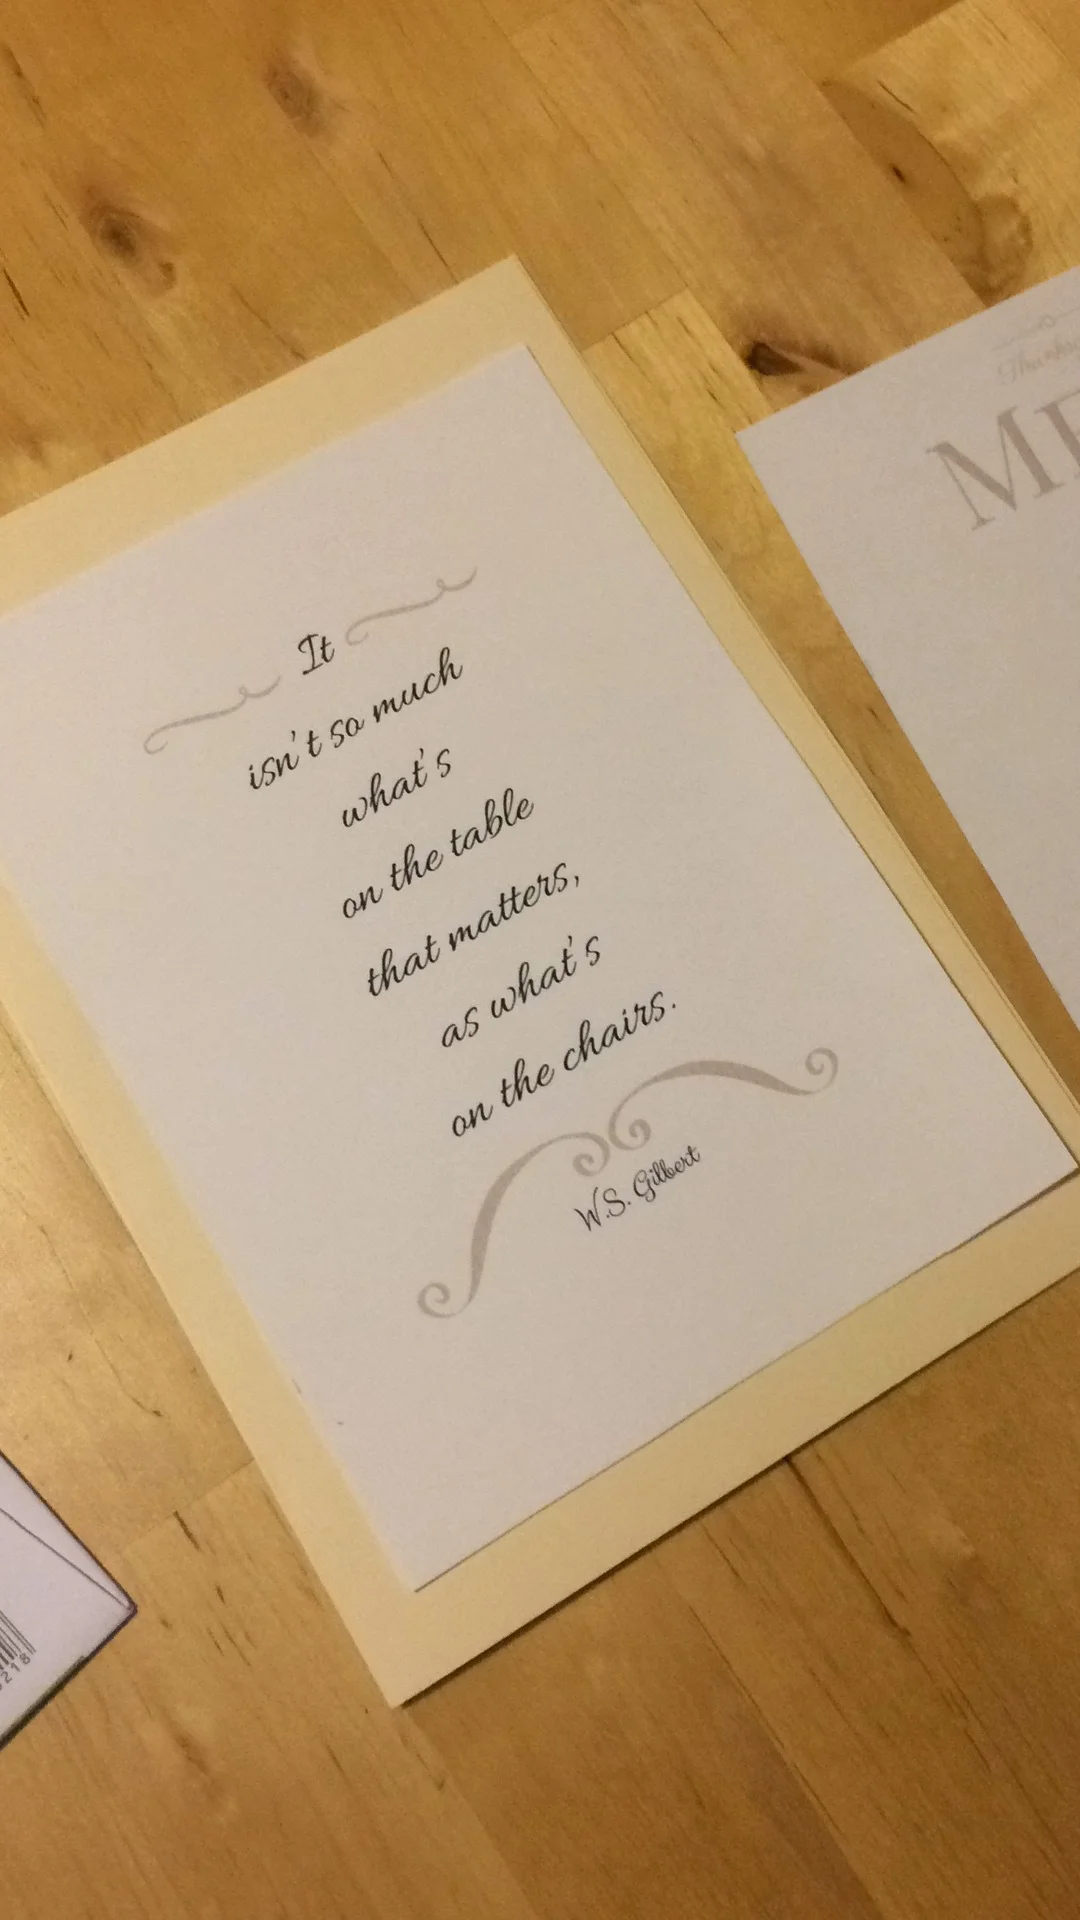 It
isn't so much
what's
on the table
that matters,
as what's
on the chairs.
W.S. Gilbert